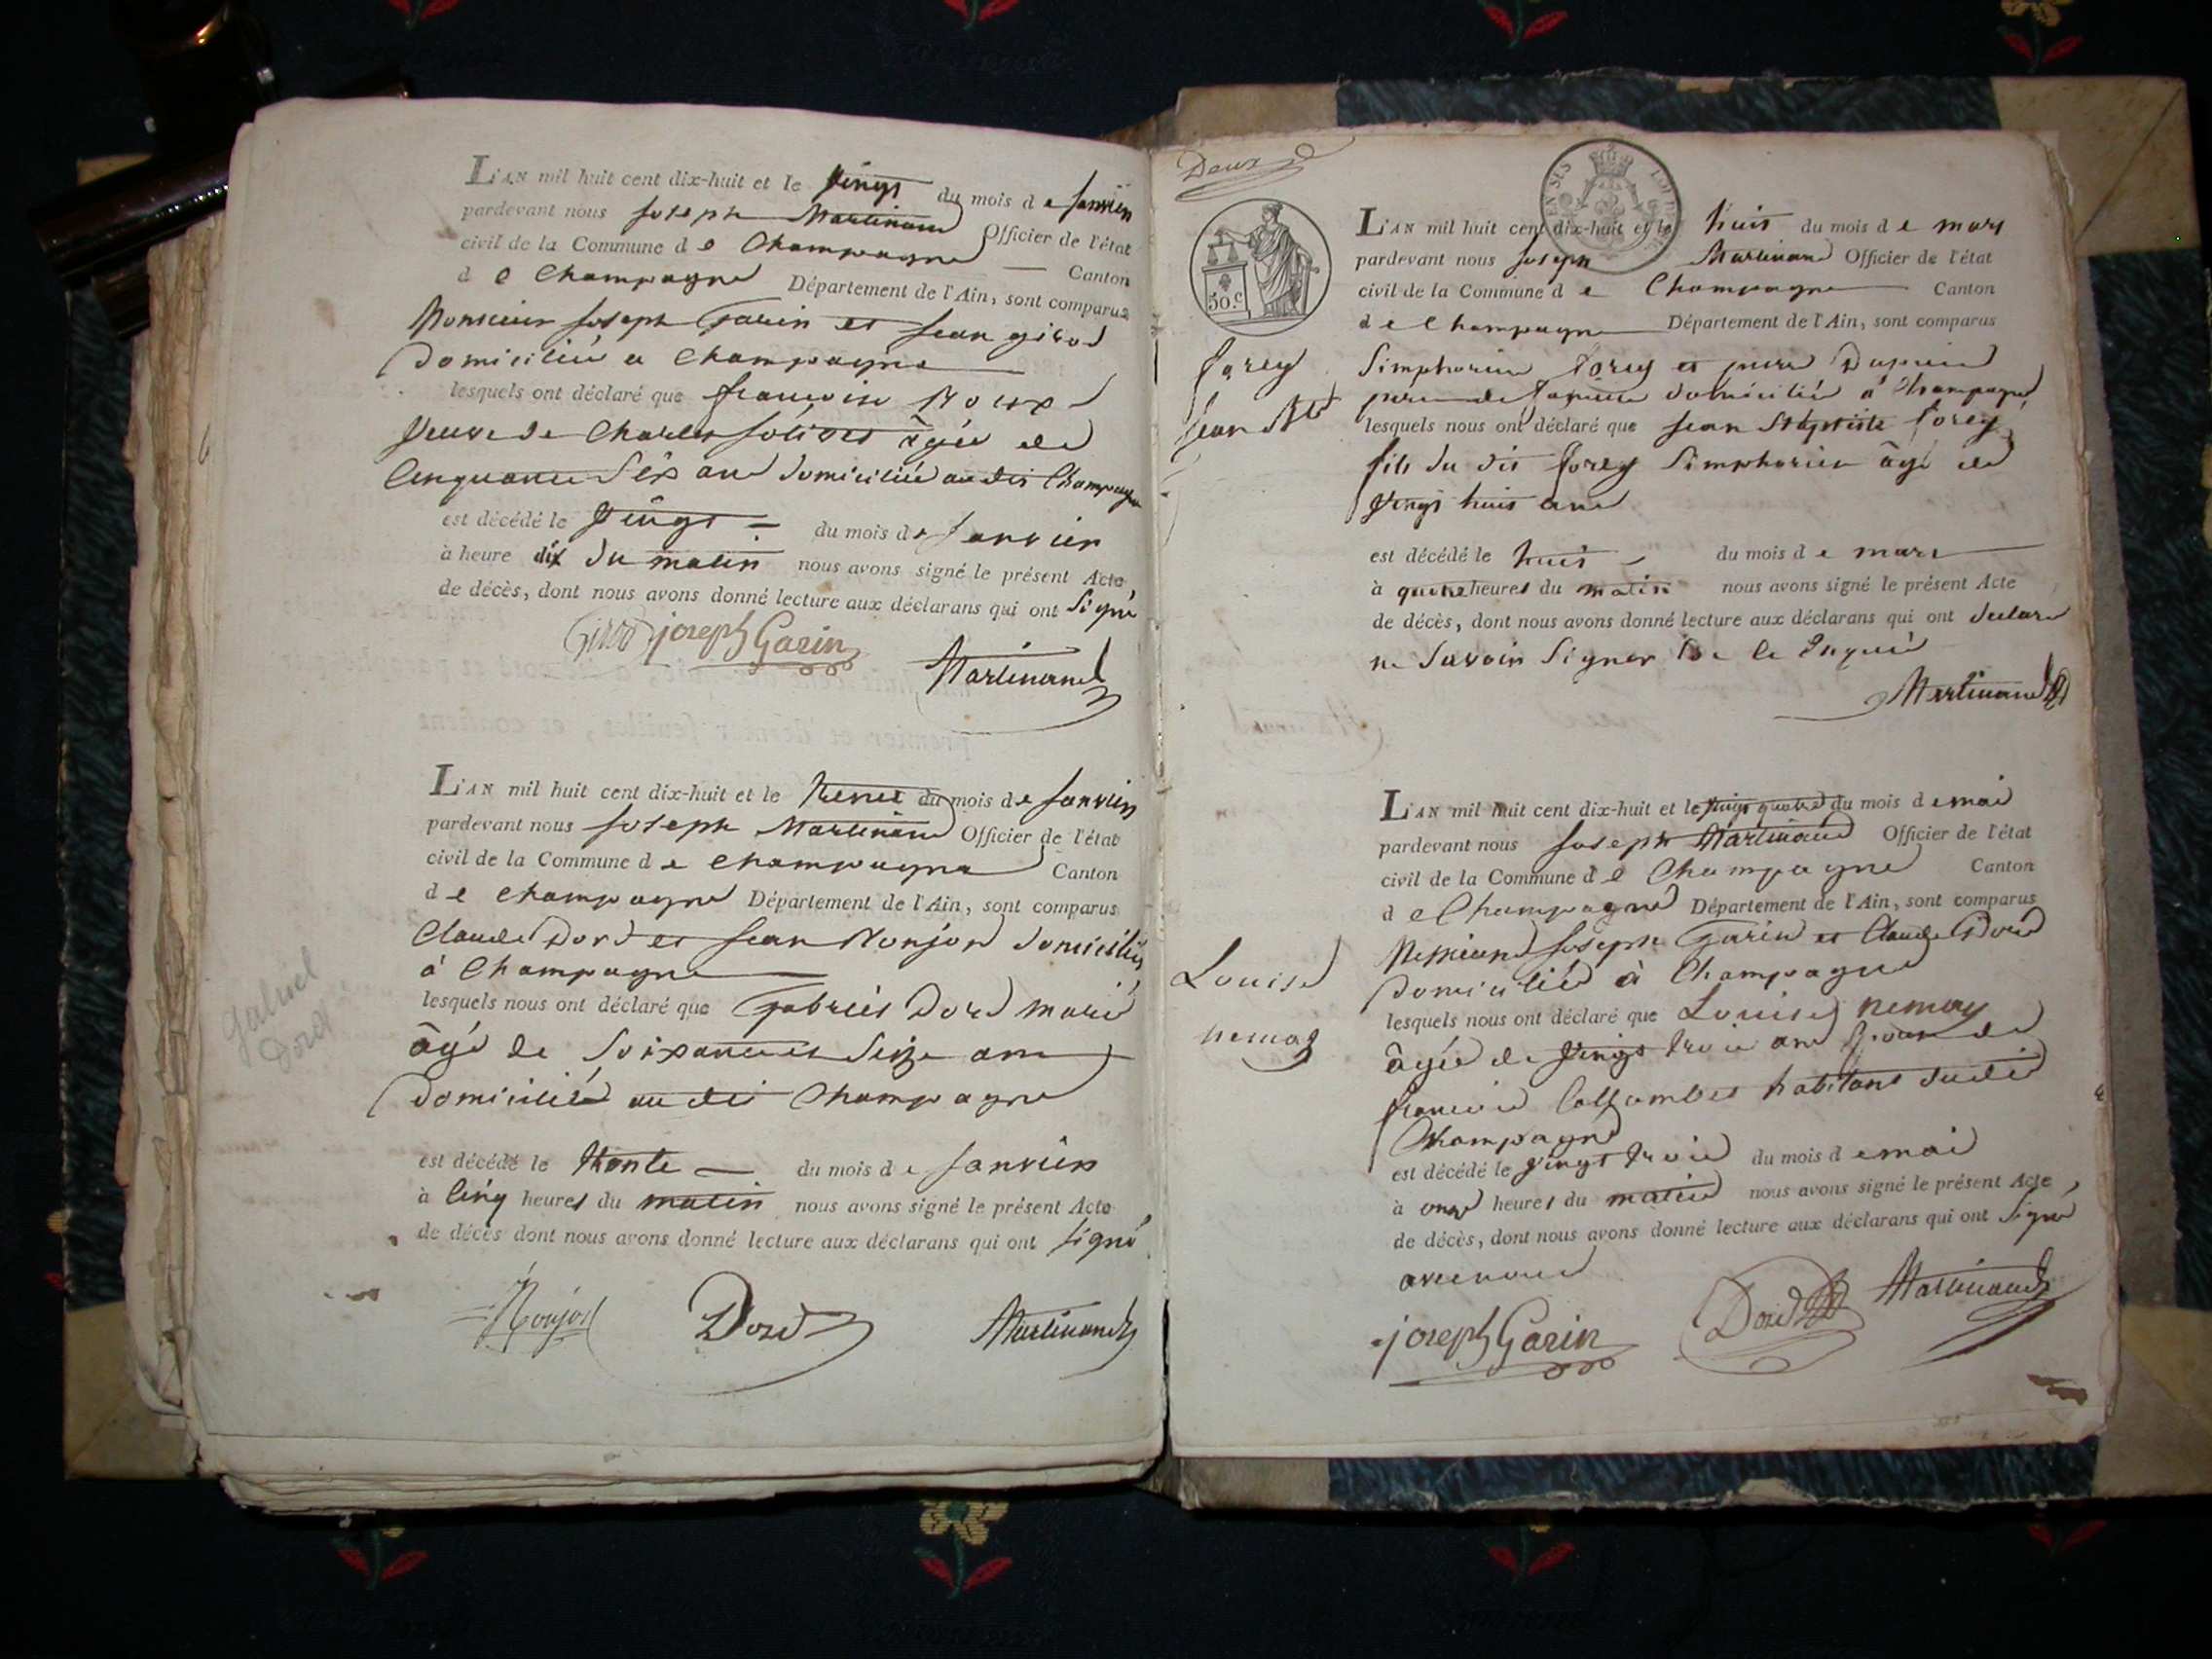 L'AN mil huit cent dix-huit et le vingt du mois de janvier
pardevant nous joseph Martinand Officier de l'état
civil de la Commune de Champagne Canton
de Champagne Département de l'Ain, sont comparus
Monsieur joseph Garin et jean girod
domicilié a Champagne
lesquels ont déclaré que francoise Roux
veuve de Charles âgée de
Cinquante Six ans domiciliée au dit Champagne
est décédé le vingt du mois de janvier
à heure dix du matin nous avons signé le présent Acte
de décès, dont nous avons donné lecture aux déclarans qui ont Signé
Girod joseph Garin
Martinand
L'AN mil huit cent dix-huit et le trente du mois de janvier
pardevant nous joseph Martinand Officier de l'état
civil de la Commune de Champagne Canton
de Champagne Département de l'Ain, sont comparus
Claude Dord et jean Monjod domiciliés
à Champagne
lesquels nous ont déclaré que Gabriel Dord marié
âgé de Soixante et Seize ans
domicilié au dit Champagne
est décédé le trente du mois de janvier
à Cinq heures du matin nous avons signé le présent Acte
de décès dont nous avons donné lecture aux déclarans qui ont signé
Monjod Dord Martinand
gabriel
Dord
Deux
50.c
forey
jean Bte
L'AN mil huit cent dix-huit et le huit du mois de mars
pardevant nous joseph Martinand Officier de l'état
civil de la Commune de Champagne Canton
de Champagne Département de l'Ain, sont comparus
Simphorien forey et pierre
domicilié à Champagne
lesquels nous ont déclaré que jean Baptiste forey
fils du dit forey Simphorien âgé de
vingt huit ans
est décédé le huit du mois de mars
à quatre heures du matin nous avons signé le présent Acte
de décès, dont nous avons donné lecture aux déclarans qui ont déclaré
ne Savoir Signer de ce Enquis
Martinand
Louise
nemoz
L'AN mil huit cent dix-huit et le vingt quatre du mois de mai
pardevant nous joseph Martinand Officier de l'état
civil de la Commune de Champagne Canton
de Champagne Département de l'Ain, sont comparus
Messieurs joseph Garin et Claude Dord
Domicilié à Champagne
lesquels nous ont déclaré que Louise nemoz
âgée de vingt trois ans Epouse de
francois habitant dudit
Champagne
est décédé le vingt trois du mois de mai
à onze heures du matin nous avons signé le présent Acte,
de décès, dont nous avons donné lecture aux déclarans qui ont Signé
avec nous
joseph Garin Dord Martinand